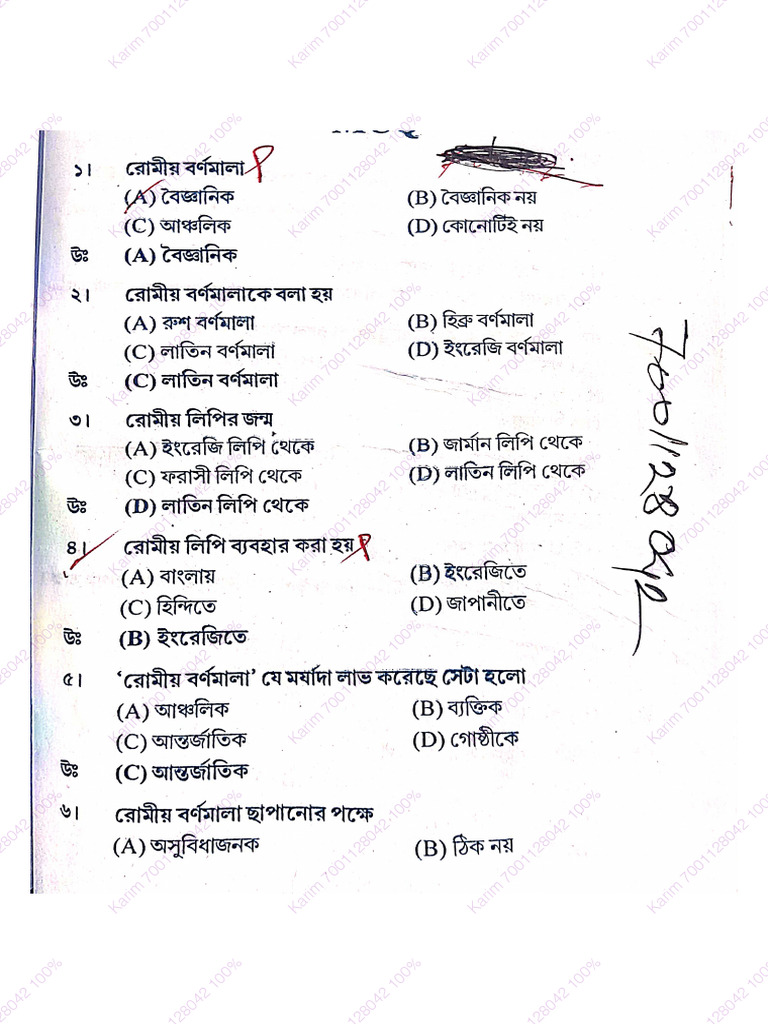 MCQ
১। রোমীয় বর্ণমালা
(A) বৈজ্ঞানিক (B) বৈজ্ঞানিক নয়
(C) আঞ্চলিক (D) কোনোটিই নয়
উঃ (A) বৈজ্ঞানিক
২। রোমীয় বর্ণমালাকে বলা হয়
(A) রুশ বর্ণমালা (B) হিব্রু বর্ণমালা
(C) লাতিন বর্ণমালা (D) ইংরেজি বর্ণমালা
উঃ (C) লাতিন বর্ণমালা
৩। রোমীয় লিপির জন্ম
(A) ইংরেজি লিপি থেকে (B) জার্মান লিপি থেকে
(C) ফরাসী লিপি থেকে (D) লাতিন লিপি থেকে
উঃ (D) লাতিন লিপি থেকে
৪। রোমীয় লিপি ব্যবহার করা হয়
(A) বাংলায় (B) ইংরেজিতে
(C) হিন্দিতে (D) জাপানীতে
উঃ (B) ইংরেজিতে
৫। ‘রোমীয় বর্ণমালা’ যে মর্যাদা লাভ করেছে সেটা হলো
(A) আঞ্চলিক (B) ব্যক্তিক
(C) আন্তর্জাতিক (D) গোষ্ঠীকে
উঃ (C) আন্তর্জাতিক
৬। রোমীয় বর্ণমালা ছাপানোর পক্ষে
(A) অসুবিধাজনক (B) ঠিক নয়
7001128042
Karim 7001128042 100%